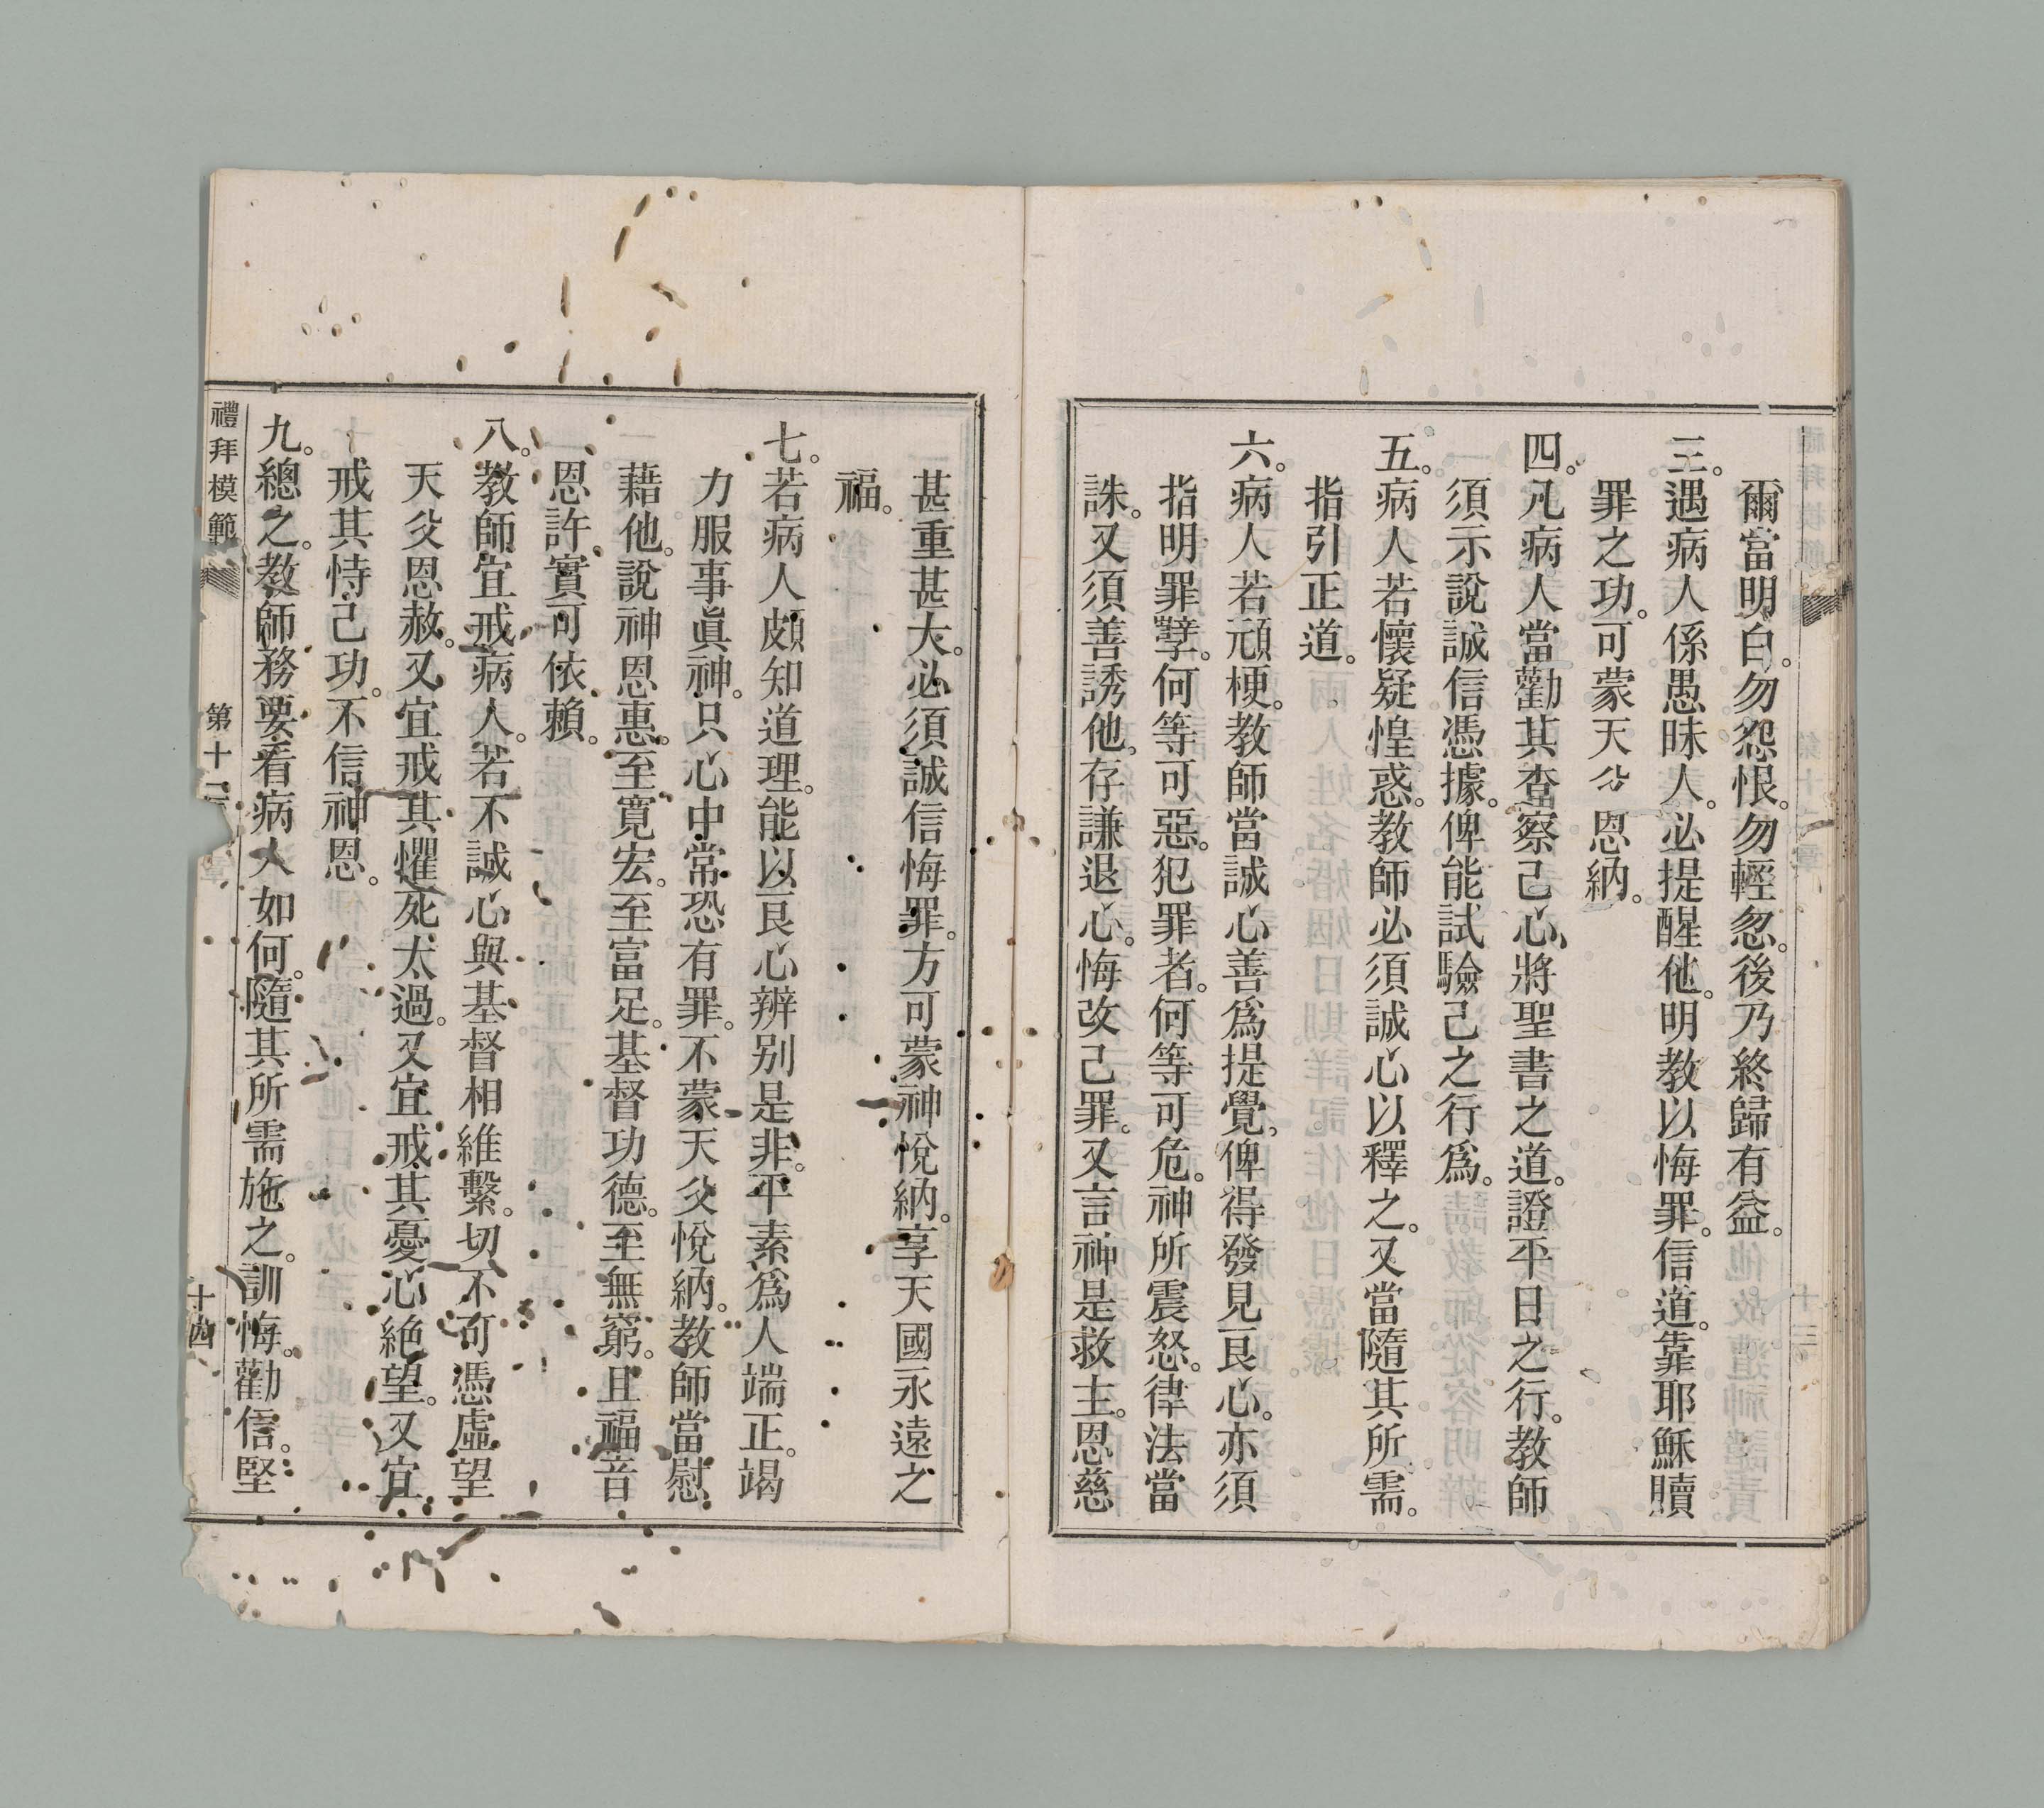 爾當明白。勿怨恨。勿輕忽。後乃終歸有益。
三。遇病人係愚昧人。必提醒他。明教以悔罪。信道。靠耶穌贖
罪之功。可蒙天父恩納。
四。凡病人當勸其查察己心、將聖書之道。證平日之行。教師
須示說誠信憑據。俾能試驗己之行爲。
五。病人若懷疑惶惑。教師必須誠心以釋之。又當隨其所需。
指引正道。
六。病人若頑梗。教師當誠心善爲提覺。俾得發見良心。亦須
指明罪孽。何等可惡。犯罪者。何等可危。神所震怒。律法當
誅。又須善誘他。存謙退心。悔改己罪。又言神是救主。恩慈
甚重甚大。必須誠信悔罪。方可蒙神悅納。享天國永遠之
福。
七。若病人頗知道理。能以良心辨别是非。平素爲人端正。竭
力服事眞神。只心中常恐有罪。不蒙天父悅納。教師當慰
藉他。說神恩惠。至寬宏。至富足。基督功德。至無窮。且福音
恩許。實可依賴。
八。教師宜戒病人。若不誠心與基督相維繫。切不可憑虛望
天父恩赦。又宜戒其懼死太過。又宜戒其憂心絶望。又宜
戒其恃己功。不信神恩。
九。總之。教師務要看病人如何。隨其所需施之。訓悔。勸信。堅
禮拜模範
第十二
十四